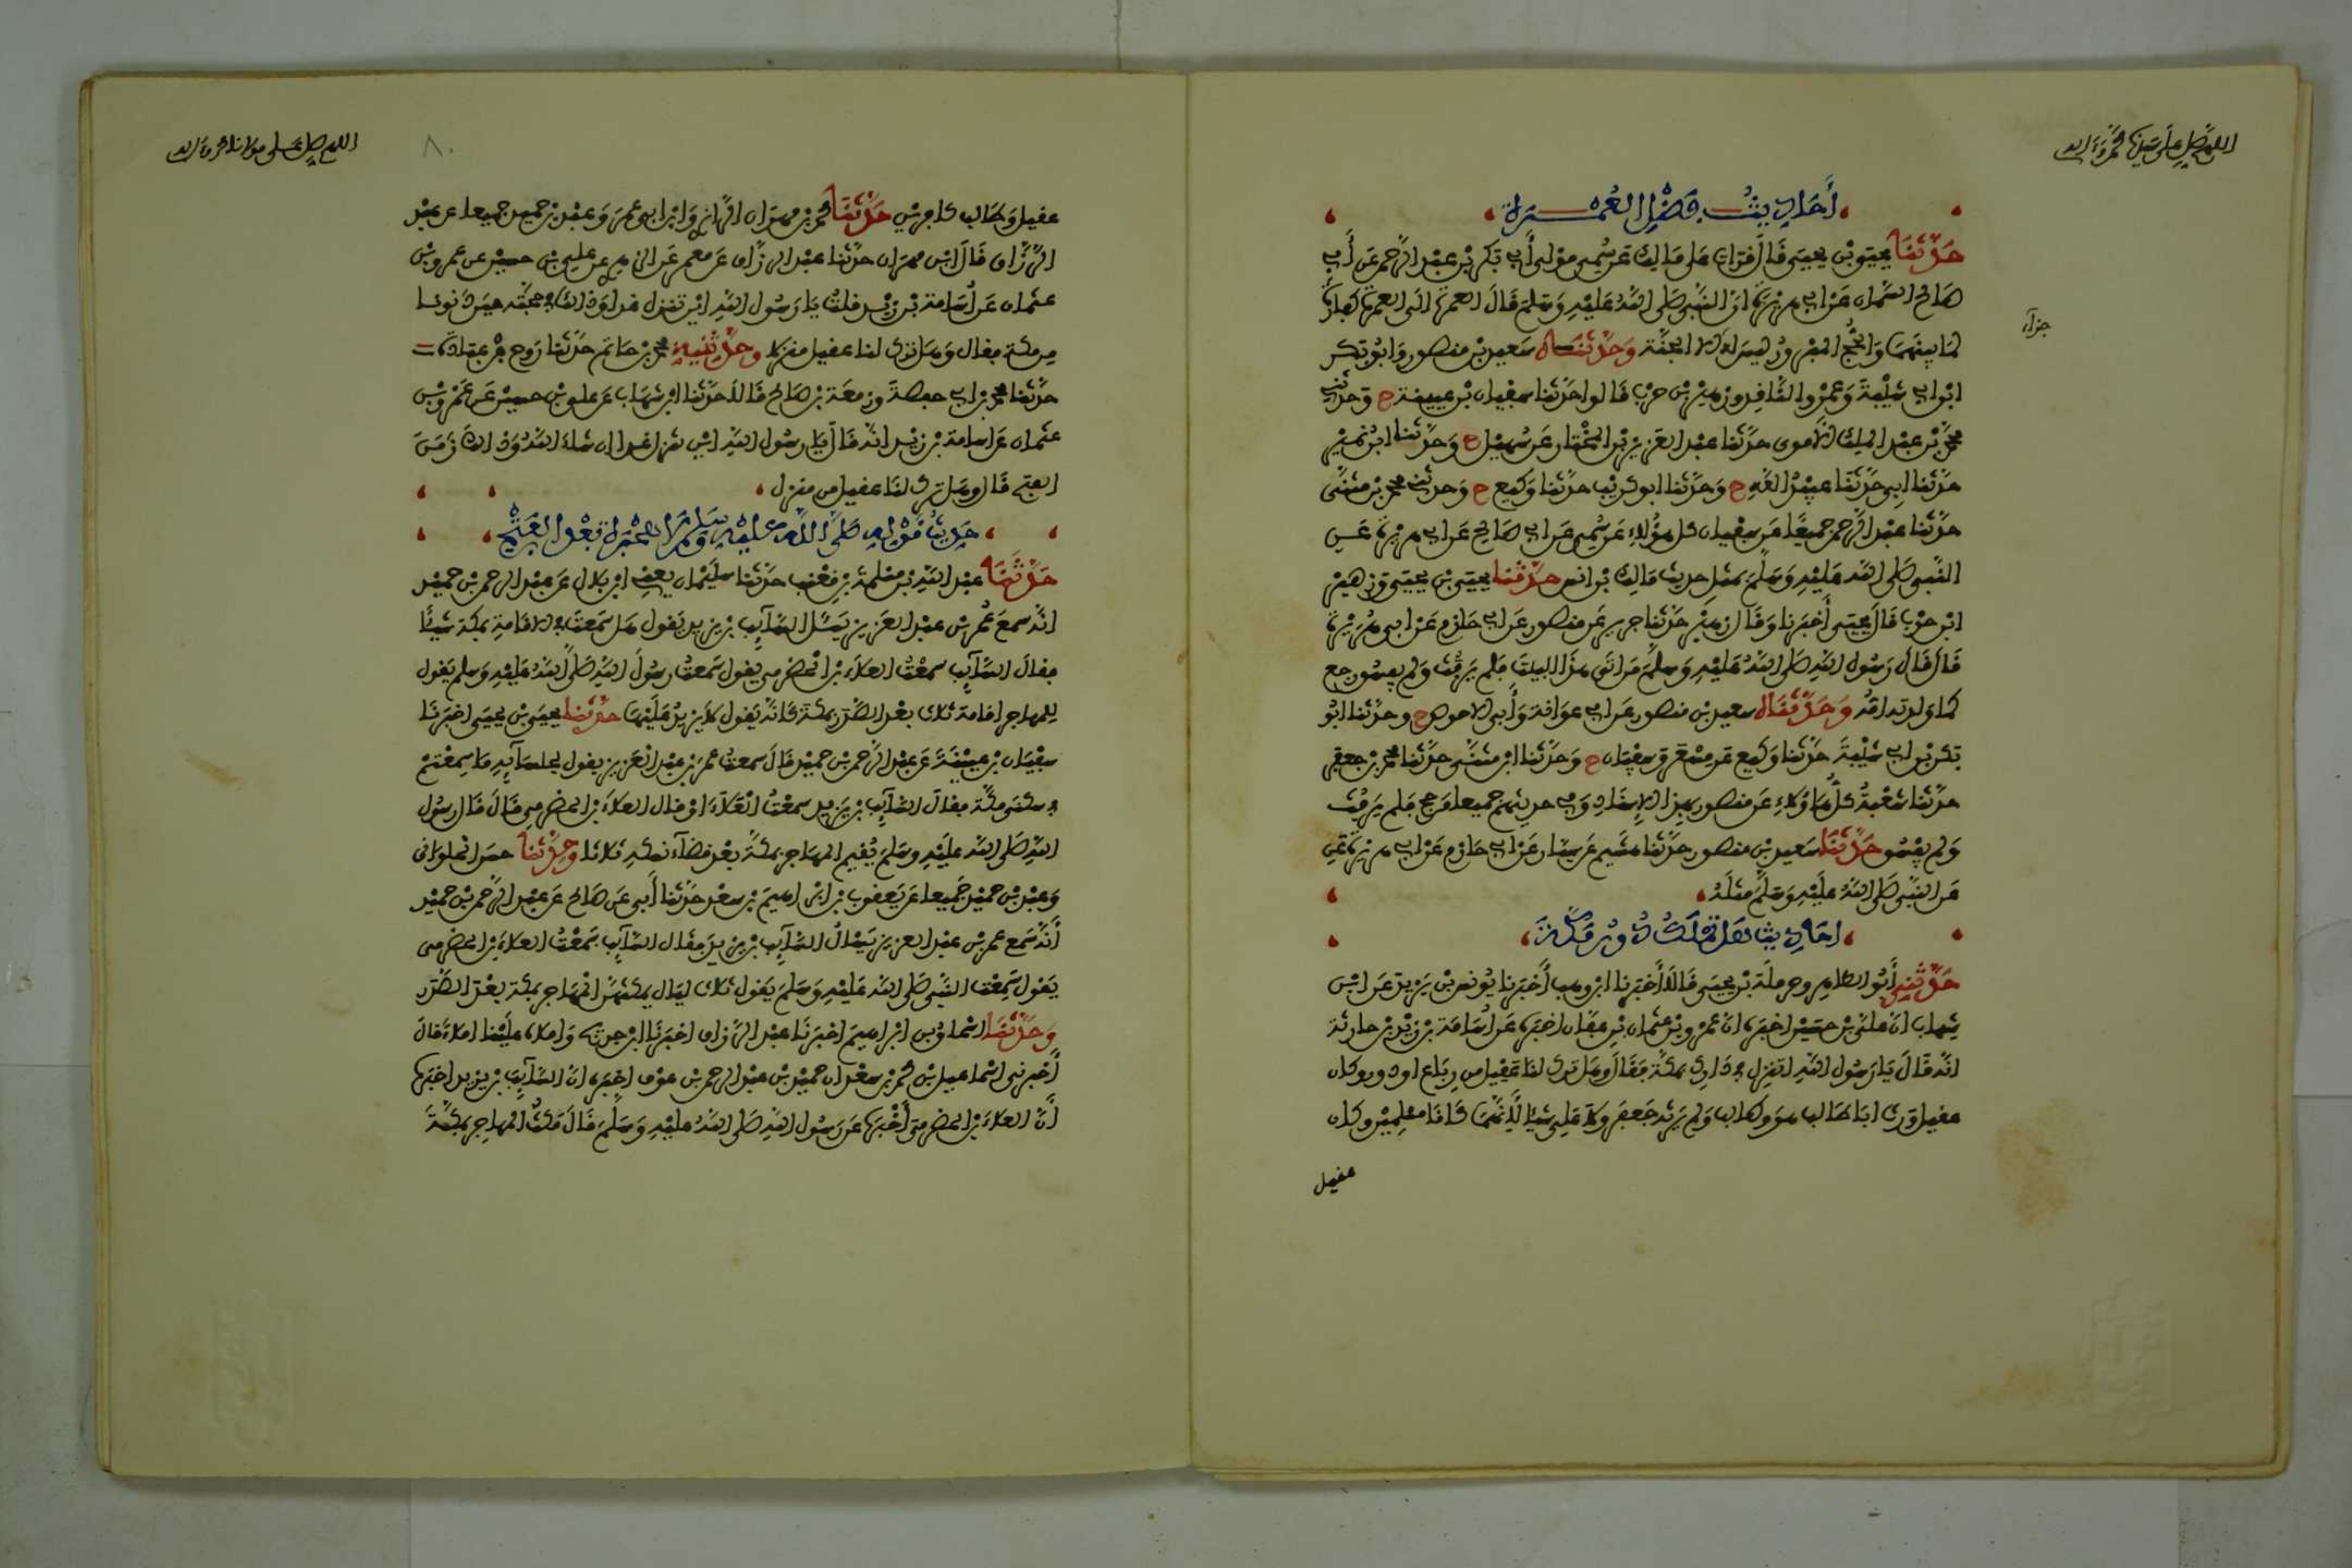 اللهم صل على سيدنا محمد وآله
أحاديث فضل العمرة
حدثنا يحيى بن يحيى قال قرات على مالك عن سمي مولى أبي بكر بن عبد الرحمن عن أبي
صالح السمان عن ابي هريرة ان النبي صلى الله عليه وسلم قال العمرة الى العمرة كفارة
لما بينهما والحج المبرور ليس له الا الجنة وحدثناه سعيد بن منصور وابو بكر
ابن ابي شيبة وعمرو الناقد وزهير بن حرب قالوا حدثنا سفيان بن عيينة ح وحدثني
محمد بن عبد الملك الاموي حدثنا عبد العزيز بن المختار عن سهيل ح وحدثنا ابن نمير
حدثنا ابي حدثنا عبيد الله ح وحدثنا ابو كريب حدثنا وكيع ح وحدثني محمد بن مثنى
حدثنا عبد الرحمن جميعا عن سفيان كل هؤلاء عن سمي عن ابي صالح عن ابي هريرة عن
النبي صلى الله عليه وسلم بمثل حديث مالك بن انس حدثنا يحيى بن يحيى وزهير
ابن حرب قال يحيى أخبرنا وقال زهير حدثنا جرير عن منصور عن ابي حازم عن ابي هريرة
قال قال رسول الله صلى الله عليه وسلم من اتى هذا البيت فلم يرفث ولم يفسق رجع
كما ولدته امه وحدثناه سعيد بن منصور عن ابي عوانة وأبي الاحوص ح وحدثنا ابو
بكر بن ابي شيبة حدثنا وكيع عن مسعر وسفيان ح وحدثنا ابن مثنى حدثنا محمد بن جعفر
حدثنا شعبة كل هاؤلاء عن منصور بهذا الاسناد وفي حديثهم جميعا من حج فلم يرفث
ولم يفسق حدثنا سعيد بن منصور حدثنا هشيم عن سيار عن ابي حازم عن ابي هريرة عن
عن النبي صلى الله عليه وسلم مثله
حدثني أبو الطاهر وحرملة بن يحيى قالا أخبرنا ابن وهب أخبرنا يونس بن يزيد عن ابن
شهاب ان علي بن حسين اخبره ان عمرو بن عثمان بن عفان اخبره عن أسامة بن زيد بن حارثة
انه قال يا رسول الله اتنزل في دارك بمكة فقال وهل ترك لنا عقيل من رباع او دور وكان
عقيل ورث ابا طالب هو وطالب ولم يرثه جعفر ولا علي شيئا لانهما كانا مسلمين وكان
عقيل
اللهم صل على مولانا محمد وآله
٨٠
عقيل وطالب كافرين حدثنا محمد بن مهران الرازي وابن ابي عمر وعبد بن حميد جميعا عن عبد
الرزاق قال ابن مهران حدثنا عبد الرزاق عن معمر عن الزهري عن علي بن حسين عن عمرو بن
عثمان عن أسامة بن زيد قلت يا رسول الله اين تنزل غدا وذلك في حجته حين دنونا
من مكة فقال وهل ترك لنا عقيل منزلا وحدثنيه محمد بن حاتم حدثنا روح بن عبادة
حدثنا محمد بن ابي حفصة وزمعة بن صالح قالا حدثنا ابن شهاب عن علي بن حسين عن عمرو بن
عثمان عن اسامة بن زيد انه قال يا رسول الله اين تنزل غدا ان شاء الله وذلك زمن
الفتح قال وهل ترك لنا عقيل من منزل
حدثنا عبد الله بن مسلمة بن قعنب حدثنا سليمان يعني ابن بلال عن عبد الرحمن بن حميد
انه سمع عمر بن عبد العزيز يسئل السايب بن يزيد يقول هل سمعت في الاقامة بمكة شيئا
فقال السايب سمعت العلاء بن الحضرمي يقول سمعت رسول الله صلى الله عليه وسلم يقول
للمهاجر اقامة ثلاث بعد الصدر بمكة كانه يقول لا يزيد عليها حدثنا يحيى بن يحيى اخبرنا
سفيان بن عيينة عن عبد الرحمن بن حميد قال سمعت عمر بن عبد العزيز يقول لجلسايه ما سمعتم
في سكنى مكة فقال السايب بن يزيد سمعت العلاء او قال العلاء بن الحضرمي قال قال رسول
الله صلى الله عليه وسلم يقيم المهاجر بمكة بعد قضاء نسكه ثلاثا وحدثنا حسن الحلواني
وعبد بن حميد جميعا عن يعقوب بن ابراهيم بن سعد حدثنا أبي عن صالح عن عبد الرحمن بن حميد
أنه سمع عمر بن عبد العزيز يسأل السايب بن يزيد فقال السايب سمعت العلاء بن الحضرمي
يقول سمعت النبي صلى الله عليه وسلم يقول ثلاث ليال يمكثهن المهاجر بمكة بعد الصدر
وحدثنا اسحاق بن ابراهيم اخبرنا عبد الرزاق اخبرنا ابن جريج واملاه علينا املاء قال
أخبرني اسماعيل بن محمد بن سعد ان حميد بن عبد الرحمن بن عوف اخبره ان السايب بن يزيد اخبره
أن العلاء بن الحضرمي أخبره عن رسول الله صلى الله عليه وسلم قال مكث المهاجر بمكة